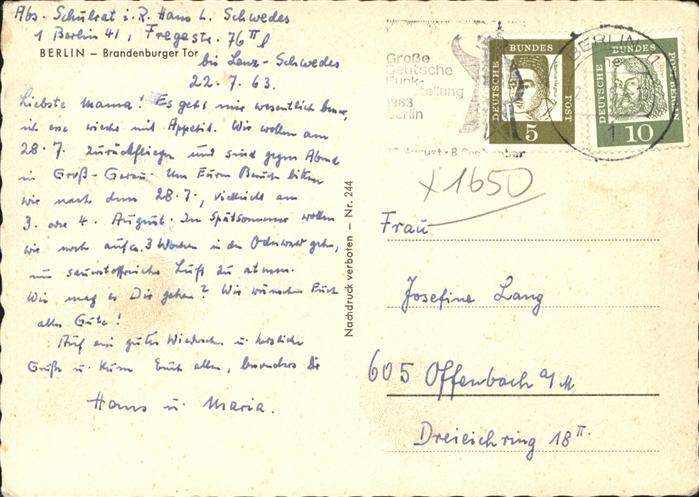 Abs. Schulrat i. R. Hans L. Schwedes
1 Berlin 41, Fregestr. 76 II l
BERLIN – Brandenburger Tor
bei Lenz-Schwedes
22.7.63.
Liebste Mama! Es geht mir wesentlich besser,
ich esse wieder mit Appetit. Wir wollen am
28.7. zurückfliegen und sind gegen Abend
in Groß-Gerau. Um Euren Besuch bitten
wir nach dem 28.7., vielleicht am
3. oder 4. August. Im Spätsommer wollen
wir noch auf ca. 3 Wochen in den Odenwald gehen,
um sauerstoffreiche Luft zu atmen.
Wie mag es Dir gehen? Wir wünschen Euch
alles Gute!
Auf ein gutes Wiedersehen u. herzliche
Grüße u. Küsse Euch allen, besonders Dir
Hans u. Maria.
Nachdruck verboten – Nr. 244
Große
Deutsche
Funk-
stellung
1963
Berlin
August - 8. September
DEUTSCHE BUNDESPOST
5
DEUTSCHE BUNDESPOST
10
BERLIN
1
x 1650
Frau
Josefine Lang
605 Offenbach a/M
Dreieichring 18 II.